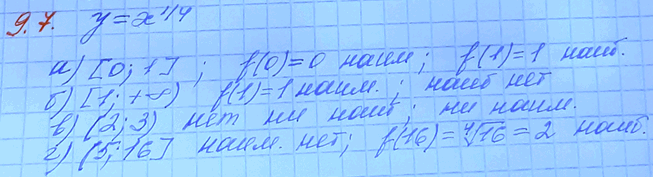 9.7. y = x^1/4
а) [0; 1] ; f(0) = 0 наим ; f(1) = 1 наиб.
б) [1; +∞) f(1) = 1 наим. ; наиб нет
в) (2; 3) нет ни наиб ; ни наим.
г) (5; 16] наим. нет; f(16) = ⁴√16 = 2 наиб.